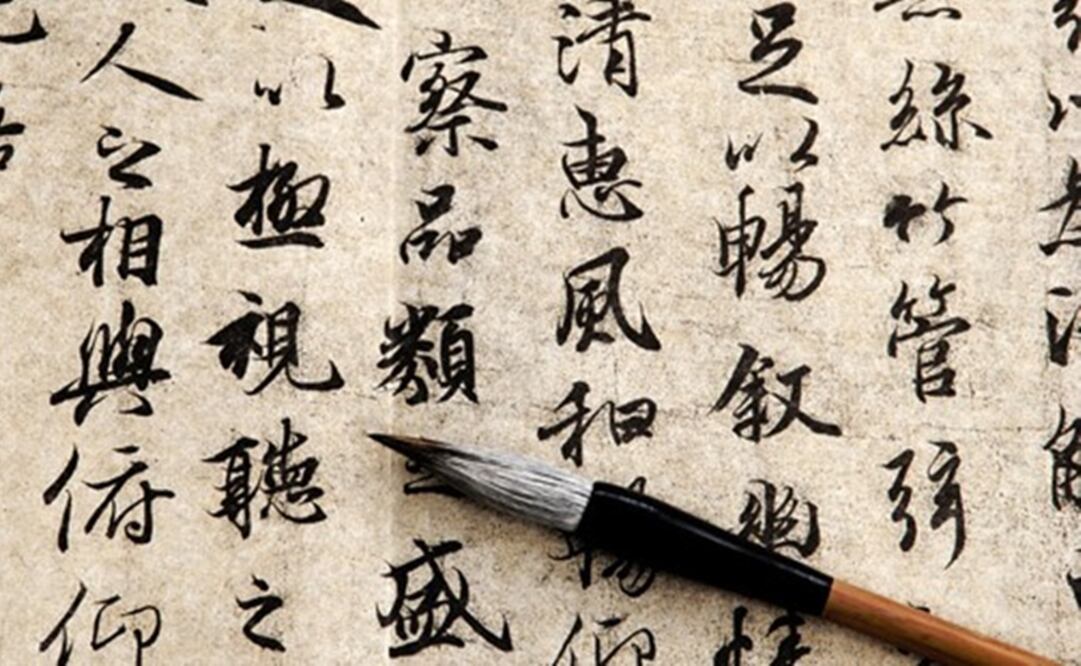 絲竹管弦
足以暢叙幽情
清惠風和暢仰
察品類盛
以極視聽之
人之相與俯仰